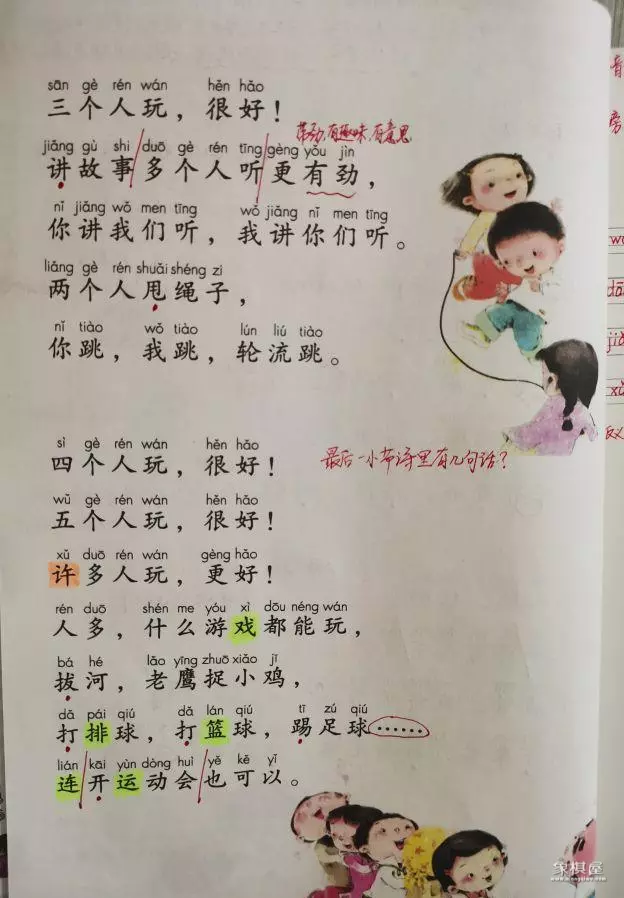 sān gè rén wán hěn hǎo
三个人玩，很好！
带劲,有趣味,有意思
jiǎng gù shi duō gè rén tīng gèng yǒu jìn
讲故事多个人听更有劲，
nǐ jiǎng wǒ men tīng wǒ jiǎng nǐ men tīng
你讲我们听，我讲你们听。
liǎng gè rén shuǎi shéng zi
两个人甩绳子，
nǐ tiào wǒ tiào lún liú tiào
你跳，我跳，轮流跳。
sì gè rén wán hěn hǎo
四个人玩，很好！
最后一小节诗里有几句话?
wǔ gè rén wán hěn hǎo
五个人玩，很好！
xǔ duō rén wán gèng hǎo
许多人玩，更好！
rén duō shén me yóu xì dōu néng wán
人多，什么游戏都能玩，
bá hé lǎo yīng zhuō xiǎo jī
拔河，老鹰捉小鸡，
dǎ pái qiú dǎ lán qiú tī zú qiú
打排球，打篮球，踢足球……
lián kāi yùn dòng huì yě kě yǐ
连开运动会也可以。
音
旁
象棋屋